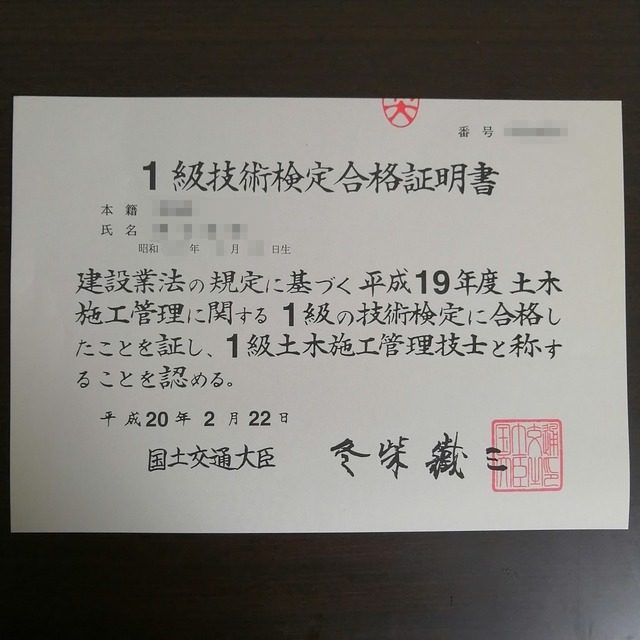 番号
1級技術検定合格証明書
本籍
氏名
昭和 年 月 日生
建設業法の規定に基づく平成19年度土木
施工管理に関する1級の技術検定に合格し
たことを証し、1級土木施工管理技士と称す
ることを認める。
平成20年2月22日
国土交通大臣 冬柴鐵三